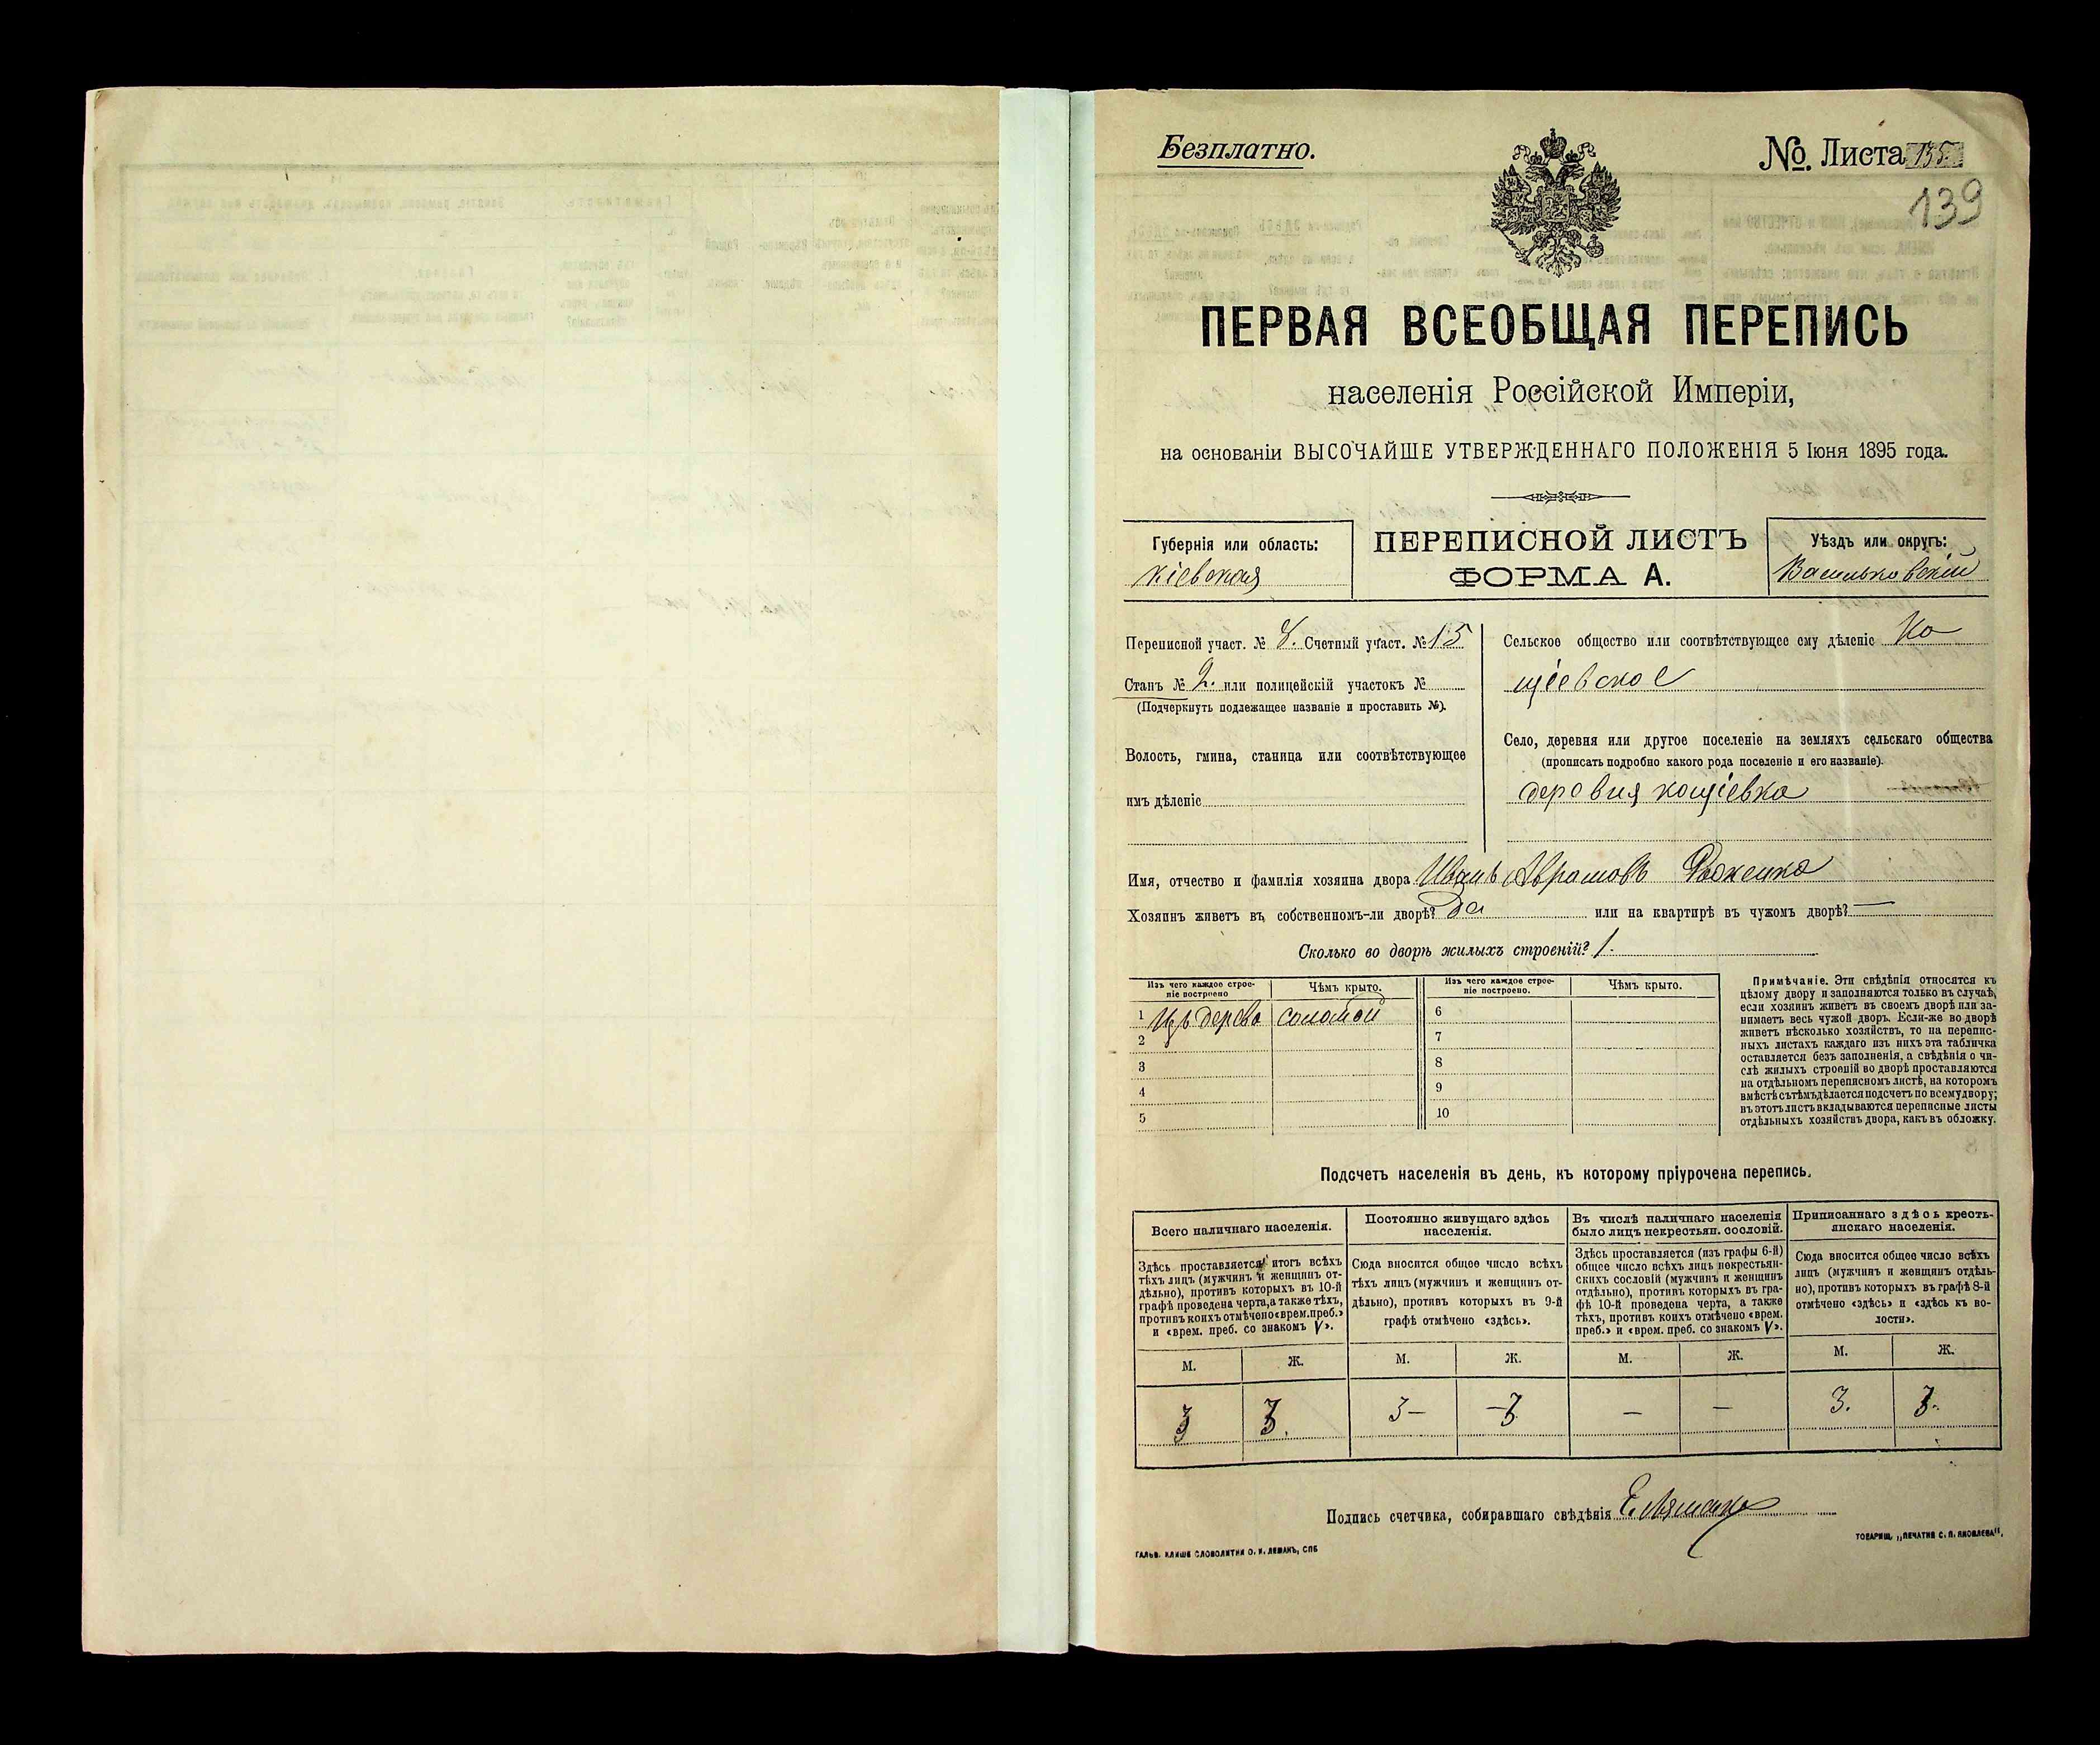 Безплатно.
№ Листа 135
139
ПЕРВАЯ ВСЕОБЩАЯ ПЕРЕПИСЬ
населенія Россійской Имперіи,
на основаніи ВЫСОЧАЙШЕ УТВЕРЖДЕННАГО ПОЛОЖЕНІЯ 5 Іюня 1895 года.
Губернія или область:
Кіевская
ПЕРЕПИСНОЙ ЛИСТЪ
ФОРМА А.
Уѣздъ или округъ:
Васильковскій
Переписной участ. № 8. Счетный участ. № 15
Станъ № 2. или полицейскій участокъ №
(Подчеркнуть подлежащее названіе и проставить №).
Волость, гмина, станица или соотвѣтствующее
имъ дѣленіе
Сельское общество или соотвѣтствующее ему дѣленіе Ко
щіевское
Село, деревня или другое поселеніе на земляхъ сельскаго общества
(прописать подробно какого рода поселеніе и его названіе).
деревня кощіевка
Имя, отчество и фамилія хозяина двора Иванъ Аврамовъ
Хозяинъ живетъ въ собственномъ-ли дворѣ? Да или на квартирѣ въ чужомъ дворѣ? —
Сколько во дворѣ жилыхъ строеній? 1.
Изъ чего каждое строе-
ніе построено
Чѣмъ крыто.
Изъ чего каждое строе-
ніе построено.
Чѣмъ крыто.
1 Изъ дерева соломой
6
2
7
3
8
4
9
5
10
Примѣчаніе. Эти свѣдѣнія относятся къ
цѣлому двору и заполняются только въ случаѣ,
если хозяинъ живетъ въ своемъ дворѣ или за-
нимаетъ весь чужой дворъ. Если-же во дворѣ
живетъ нѣсколько хозяйствъ, то на перепис-
ныхъ листахъ каждаго изъ нихъ эта табличка
оставляется безъ заполненія, а свѣдѣнія о чи-
слѣ жилыхъ строеній во дворѣ проставляются
на отдѣльномъ переписномъ листѣ, на которомъ
вмѣстѣ съ тѣмъ дѣлается подсчетъ по всему двору;
въ этотъ листъ вкладываются переписные листы
отдѣльныхъ хозяйствъ двора, какъ въ обложку.
Подсчетъ населенія въ день, къ которому пріурочена перепись.
Всего наличнаго населенія.
Постоянно живущаго здѣсь
населенія.
Въ числѣ наличнаго населенія
было лицъ некрестьян. сословій.
Приписаннаго здѣсь кресть-
янскаго населенія.
Здѣсь проставляется итогъ всѣхъ
тѣхъ лицъ (мужчинъ и женщинъ от-
дѣльно), противъ которыхъ въ 10-й
графѣ проведена черта, а также тѣхъ,
противъ коихъ отмѣчено «врем. преб.»
и «врем. преб. со знакомъ V».
Сюда вносится общее число всѣхъ
тѣхъ лицъ (мужчинъ и женщинъ от-
дѣльно), противъ которыхъ въ 9-й
графѣ отмѣчено «здѣсь».
Здѣсь проставляется (изъ графы 6-й)
общее число всѣхъ лицъ некрестьян-
скихъ сословій (мужчинъ и женщинъ
отдѣльно), противъ которыхъ въ гра-
фѣ 10-й проведена черта, а также
тѣхъ, противъ коихъ отмѣчено «врем.
преб.» и «врем. преб. со знакомъ V».
Сюда вносится общее число всѣхъ
лицъ (мужчинъ и женщинъ отдѣль-
но), противъ которыхъ въ графѣ 8-й
отмѣчено «здѣсь» и «здѣсь къ во-
лости».
М. Ж. М. Ж. М. Ж. М. Ж.
3 3. 3— —3 — — 3. 3.
Подпись счетчика, собиравшаго свѣдѣнія
ГАЛЬВ. КЛИШЕ СЛОВОЛИТНИ О. И. ЛЕМАНЪ, СПБ
ТОВАРИЩ. „ПЕЧАТНЯ С. П. ЯКОВЛЕВА".